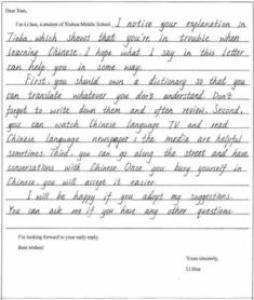 Dear Tom,
I'm Li Hua, a student of Xinhua Middle School. I notice your explanation in
Tinba which shows that you're in trouble when
learning Chinese. I hope what I say in this letter
can help you in some way.
First, you should own a dictionary so that you
can translate whatever you don't understand. Don't
forget to write down them and often review. Second,
you can watch Chinese language TV and read
Chinese language newspaper; the media are helpful
sometimes. Third, you can go along the street and have
conversations with Chinese. Once you busy yourself in
Chinese you will accept it easier.
I will be happy if you adopt my suggestions.
You can ask me if you have any other questions.
I'm looking forward to your early reply.
Best wishes!
Yours sincerely,
Li Hua